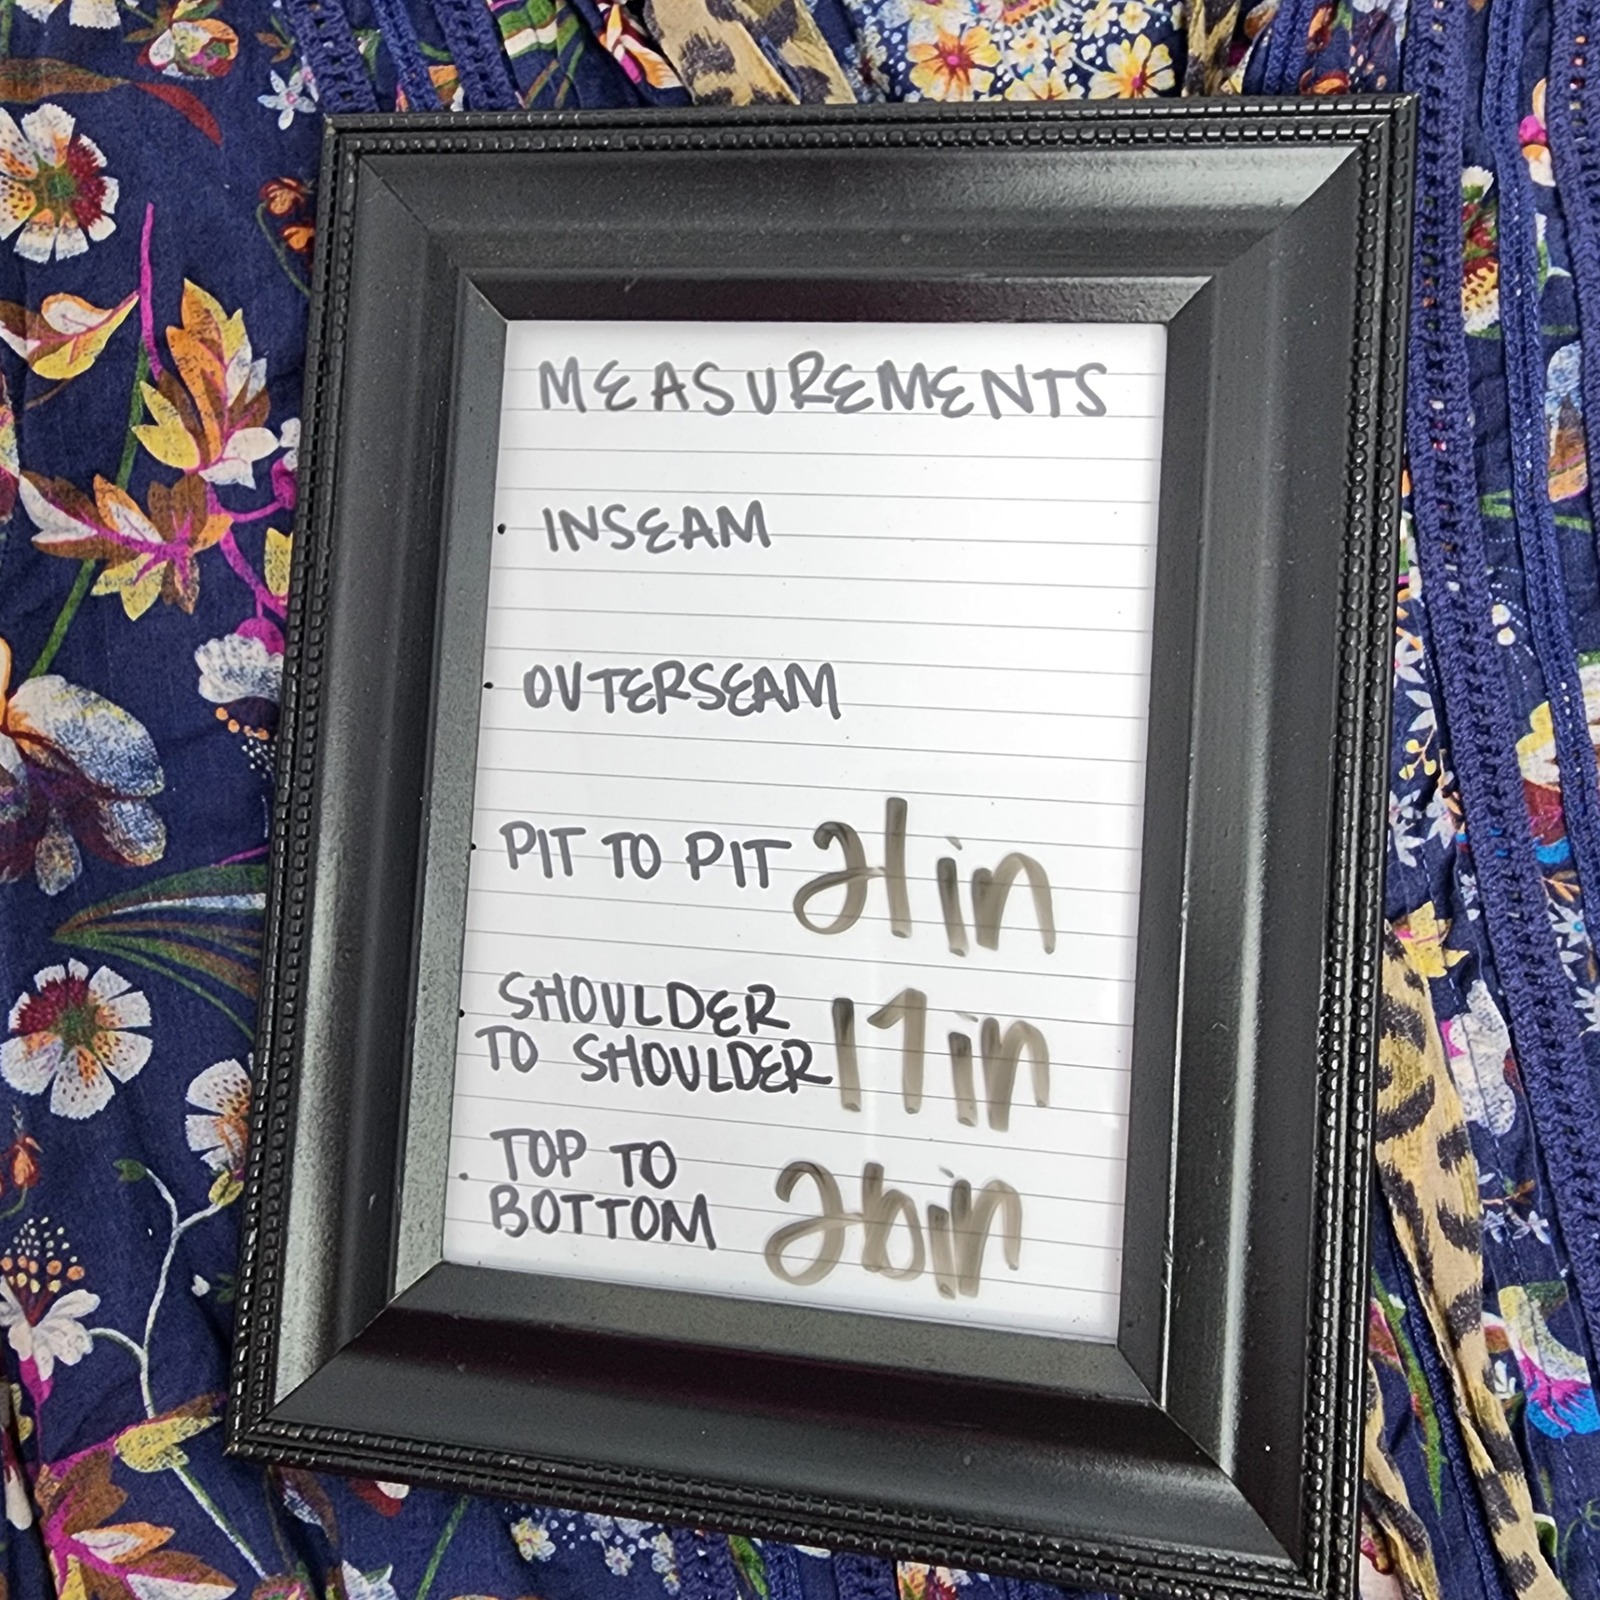 MEASUREMENTS
INSEAM
OUTERSEAM
PIT TO PIT 21in
SHOULDER
TO SHOULDER 17in
TOP TO
BOTTOM 26in